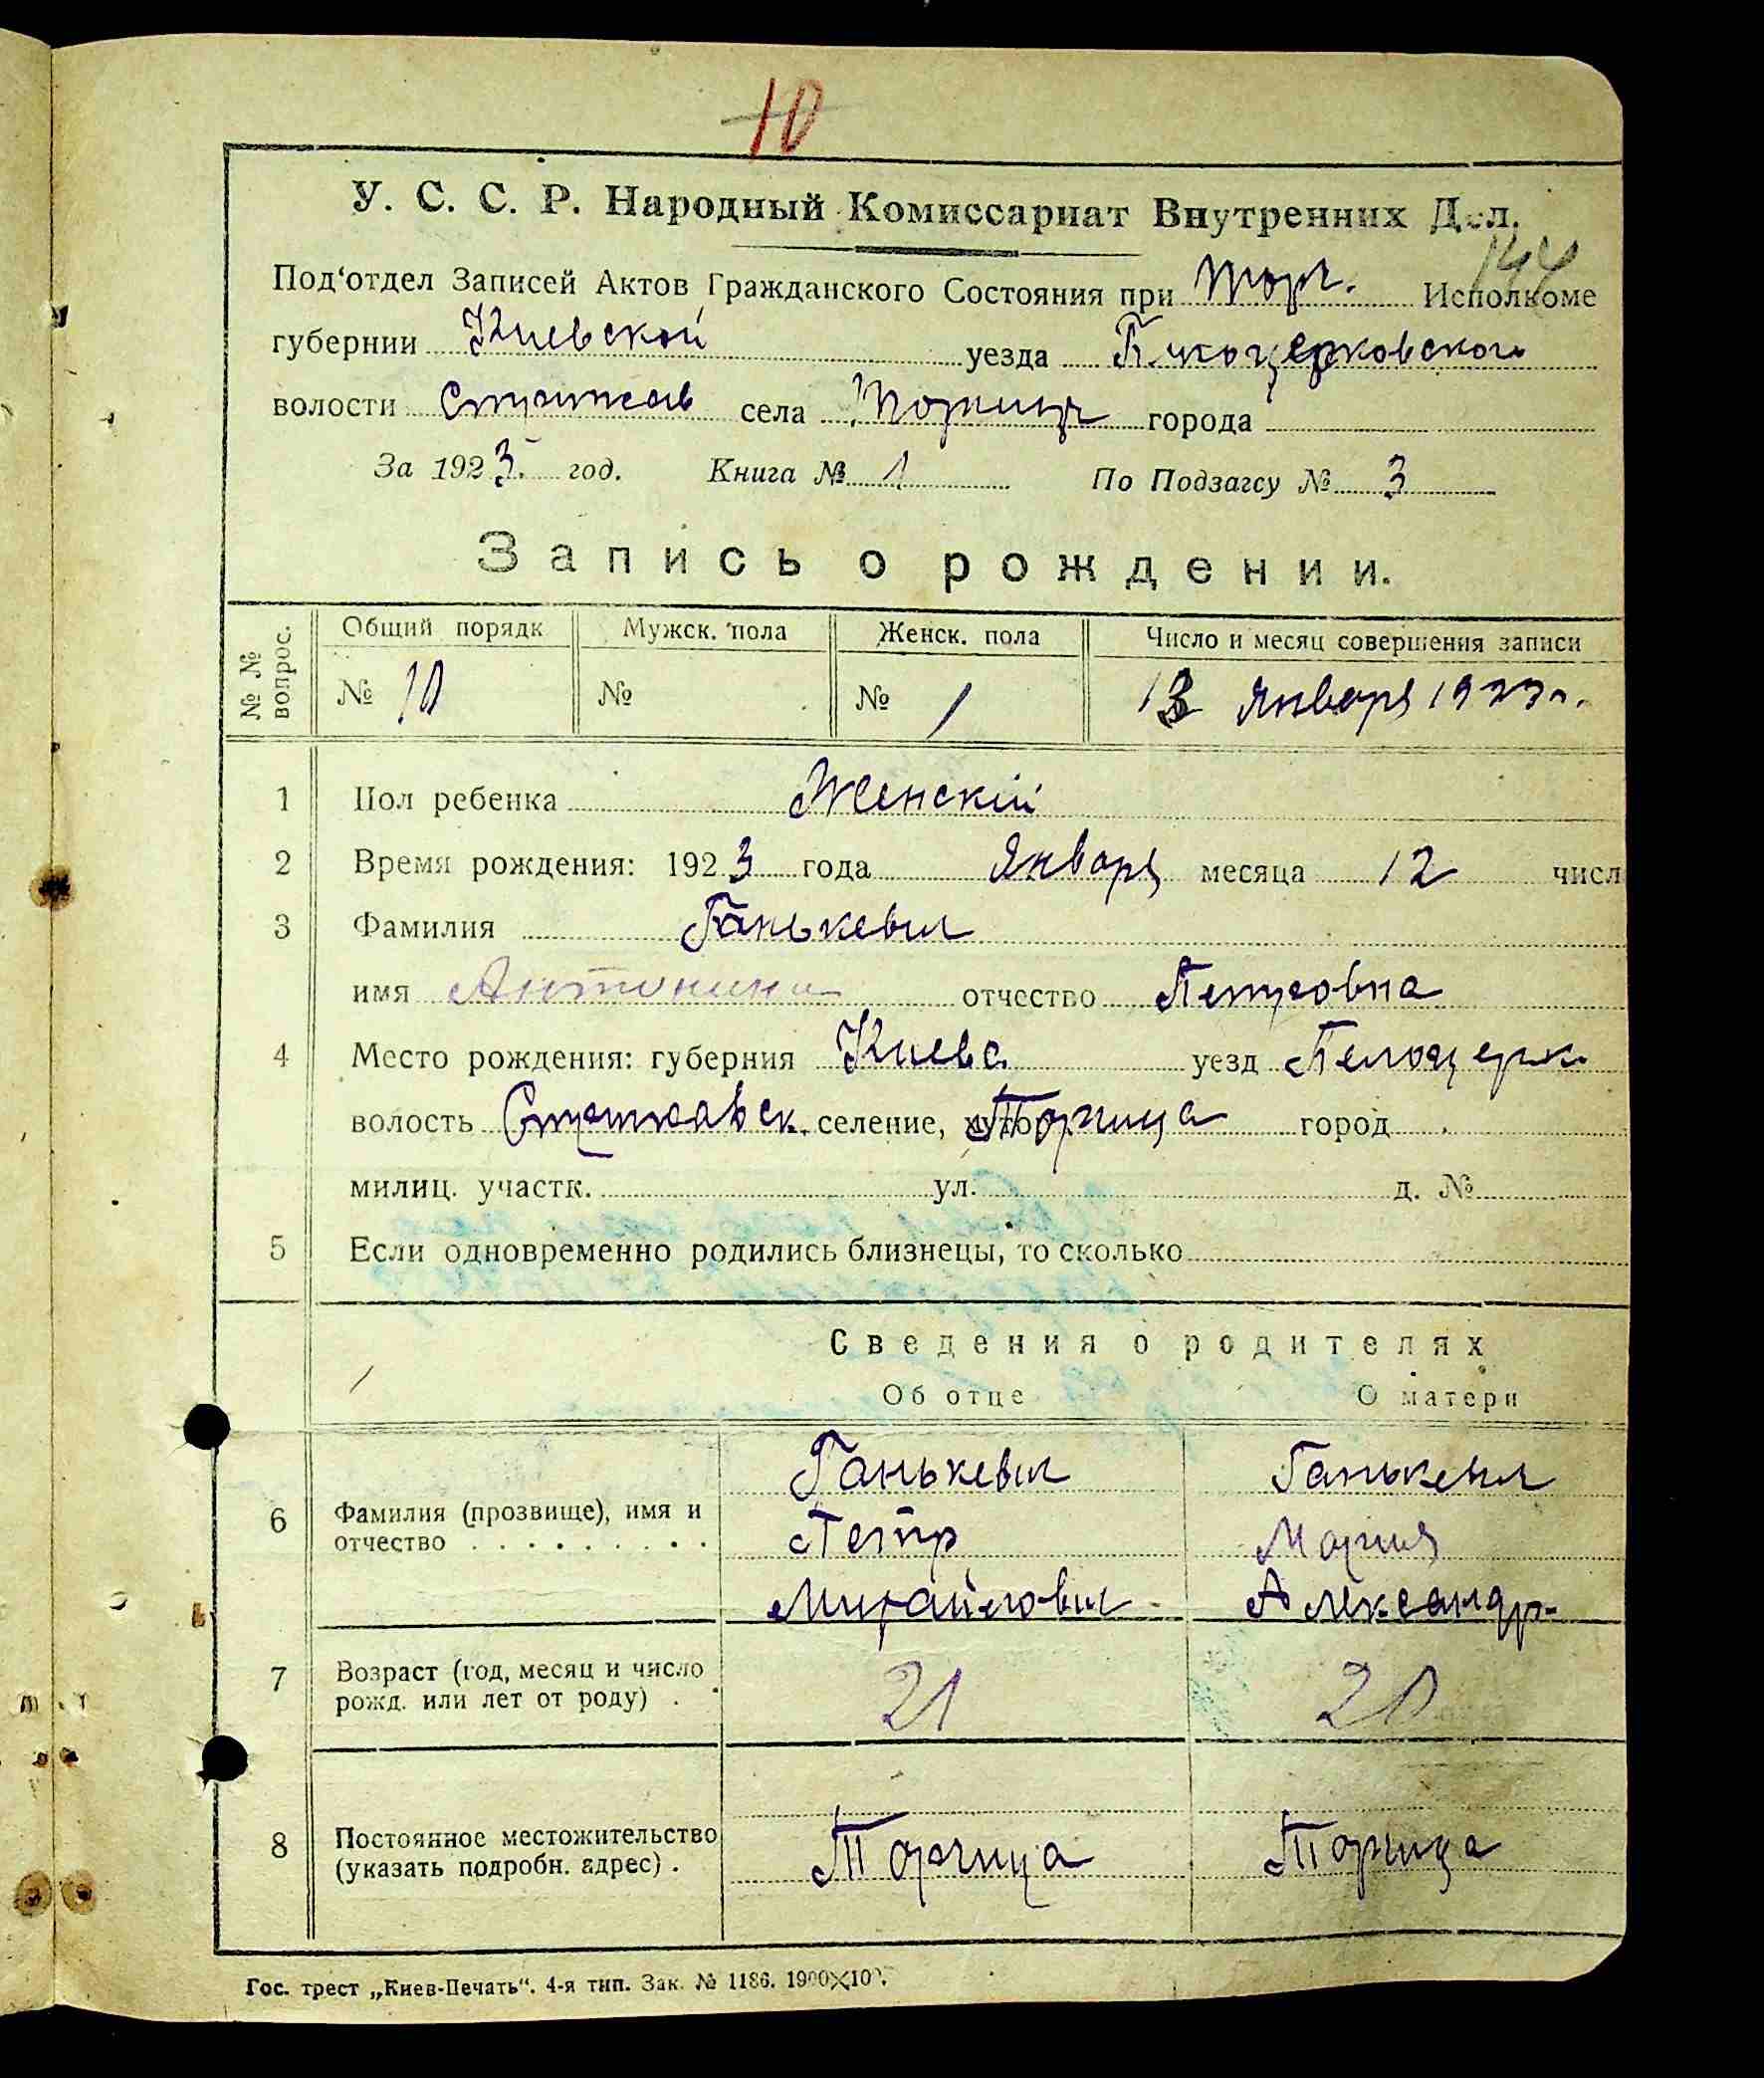 10
У. С. С. Р. Народный Комиссариат Внутренних Дел.
144
Под'отдел Записей Актов Гражданского Состояния при Торч. Исполкоме
губернии Киевской уезда Белоцерковского
волости села города
За 1923 год. Книга № 1 По Подзагсу № 3
Запись о рождении.
№ № вопрос. Общий порядк Мужск. пола Женск. пола Число и месяц совершения записи
№ 10 № № 1 13 Января 1923 г.
1 Пол ребенка Женскій
2 Время рождения: 1923 года Января месяца 12 числ
3 Фамилия Ганькевич
имя Антонина отчество Петровна
4 Место рождения: губерния Киевс. уезд Белоцерк.
волость селение, Торчица город
милиц. участк. ул. д. №
5 Если одновременно родились близнецы, то сколько
Сведения о родителях
Об отце О матери
6 Фамилия (прозвище), имя и отчество Ганькевич Петр Михайлович Ганькевич Мария Александр-
7 Возраст (год, месяц и число рожд. или лет от роду) . 21 20
8 Постоянное местожительство (указать подробн. адрес) . Торчица Торчица
Гос. трест „Киев-Печать“. 4-я тип. Зак. № 1186. 1900×100.